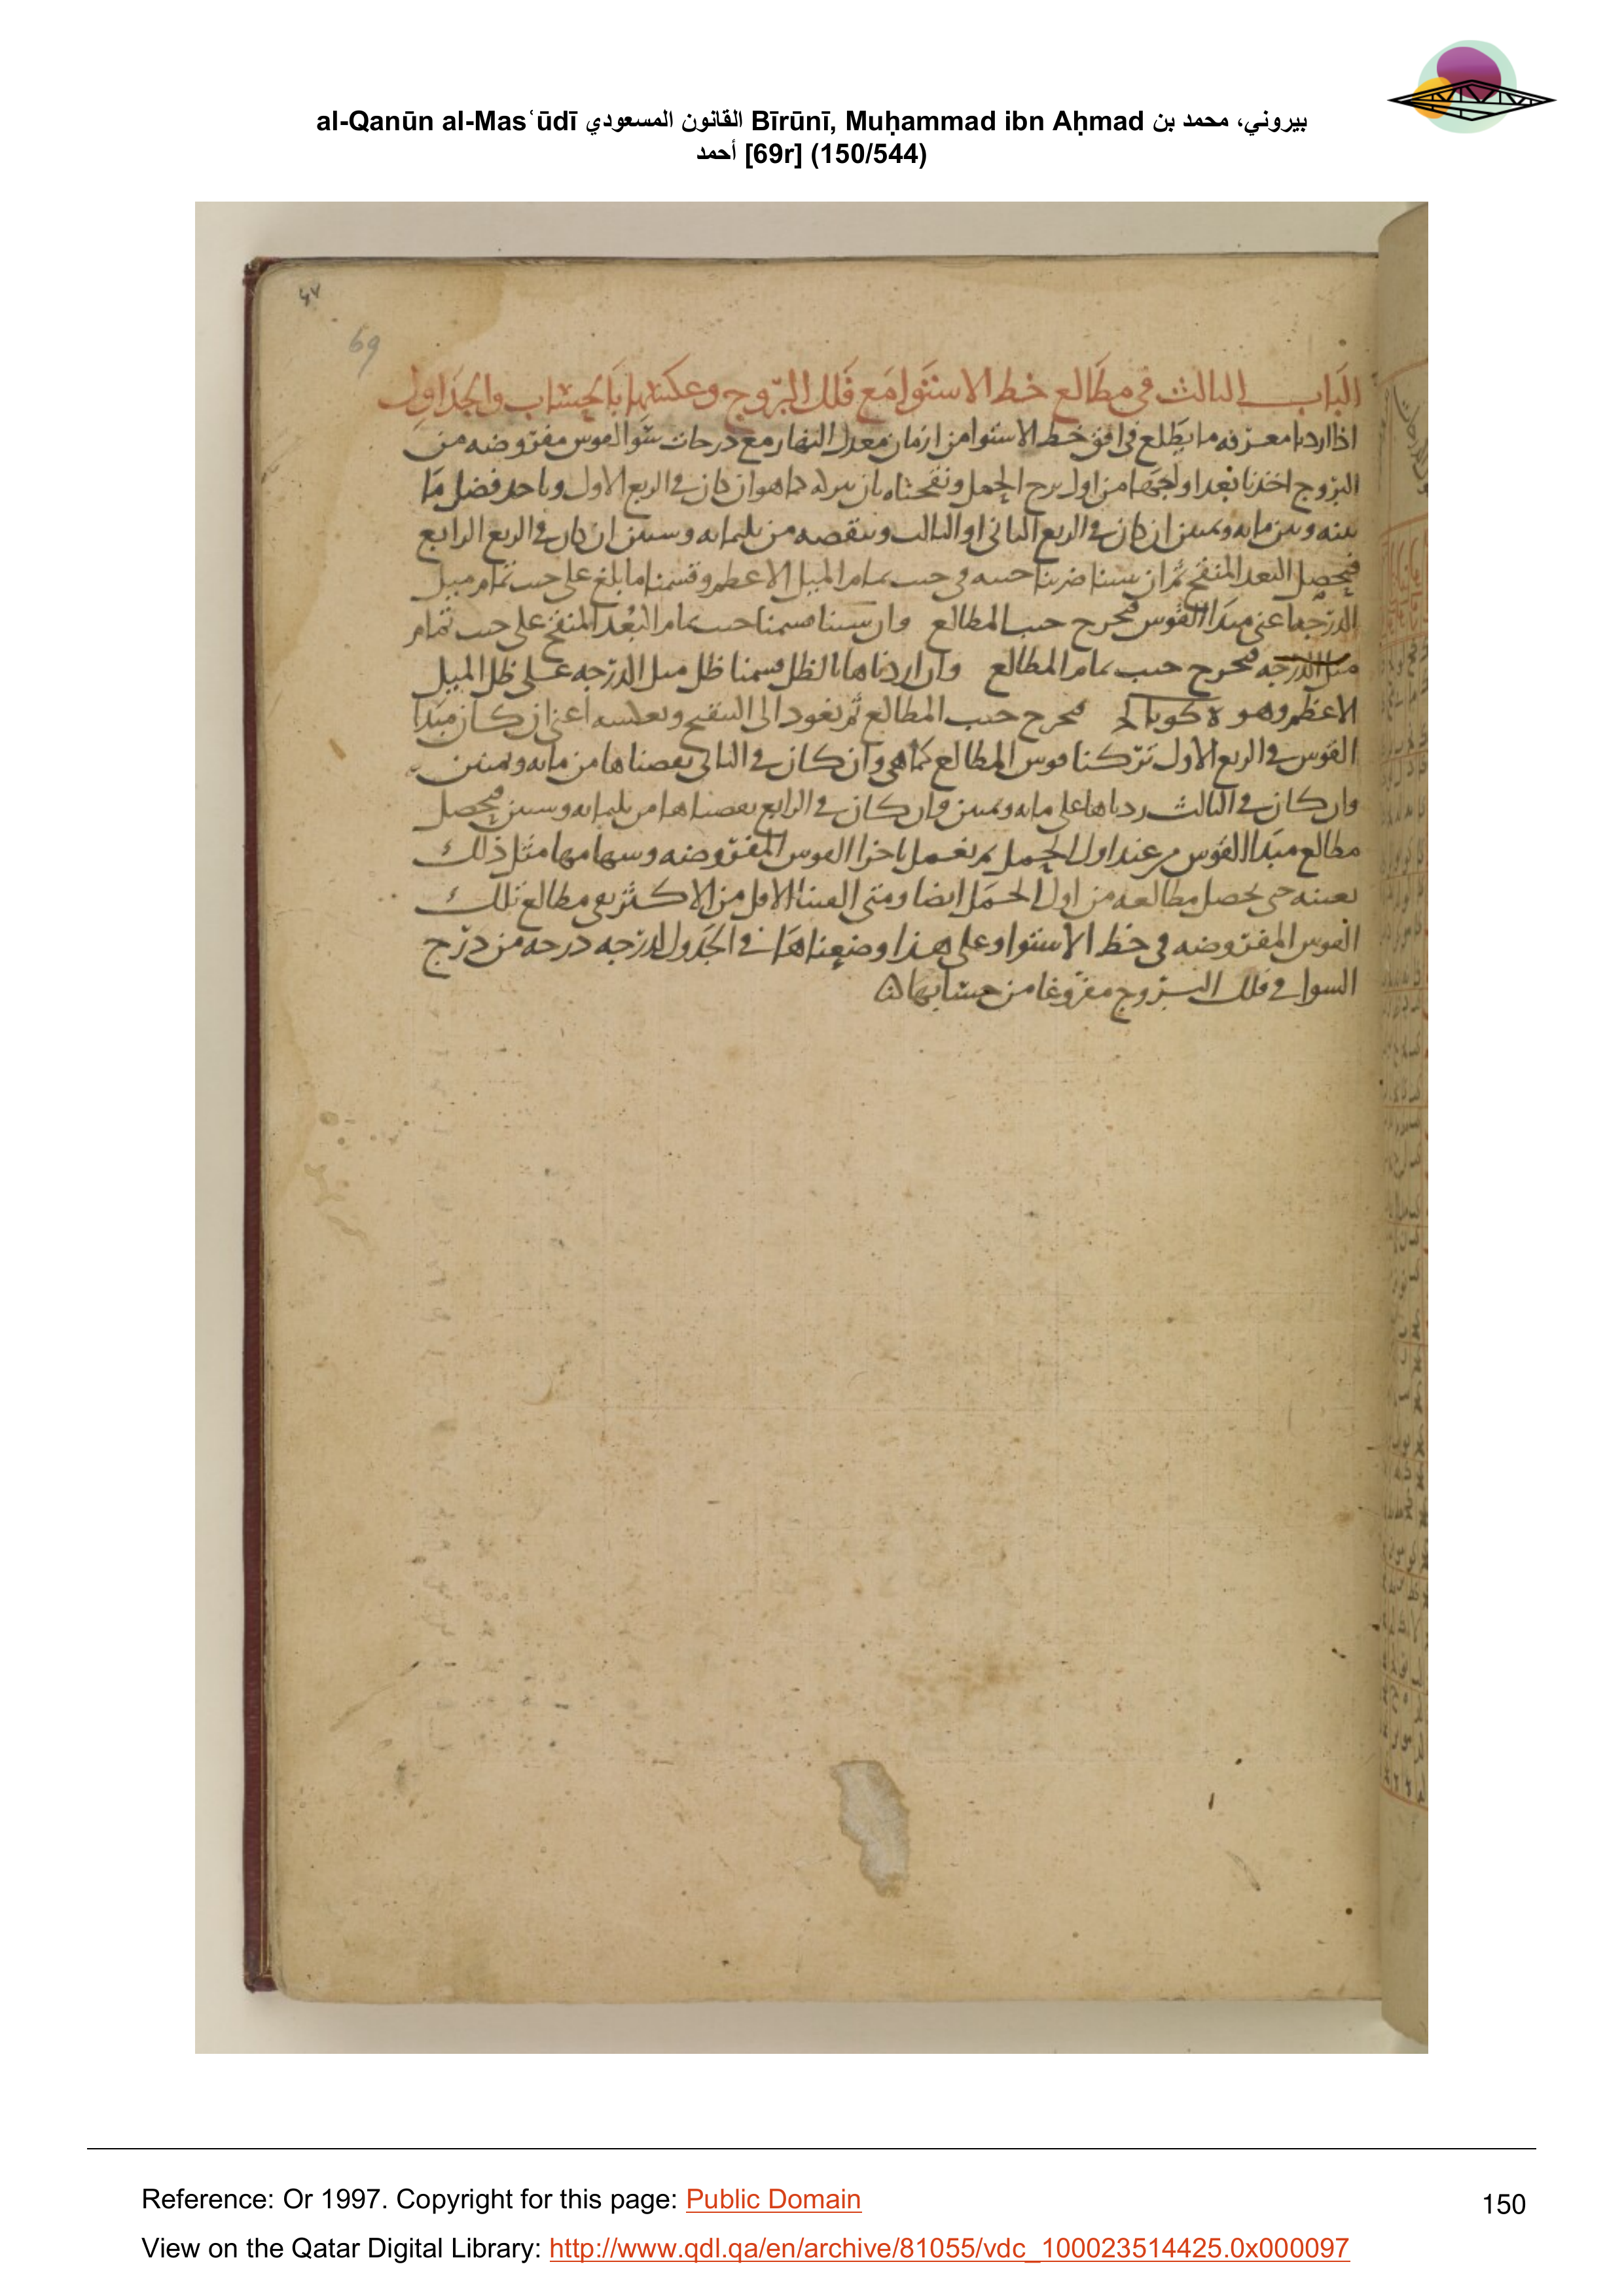 al-Qanūn al-Masʿūdī القانون المسعودي Bīrūnī, Muḥammad ibn Aḥmad بيروني، محمد بن
أحمد [69r] (150/544)
٤٧
69
الباب الثالث في مطالع خط الاستوا مع فلك البروج وعكسها بالحساب والجداول
اذا اردنا معرفه ما يطلع في افق خط الاستوا من ازمان معدل النهار مع درجات سوا لقوس مفروضه من
البروج اخذنا بعد اولجها من اول برج الحمل ونقحناه بان نتركه كما هو ان كان في الربع الاول وناخذ فضل ما
بينه وبين مايه وثمنين ان كان في الربع الثاني او الثالث وننقصه من ثلثمايه وستين ان كان في الربع الرابع
فيحصل البعد المنقح ثم ان شينا ضربنا جيبه في جيب تمام الميل الاعظم وقسمنا ما بلغ على جيب تمام ميل
الدرجه اعنى مبدا القوس فيخرج جيب المطالع وان شينا قسمنا جيب تمام البعد المنقح على جيب تمام
ميل الدرجه فيخرج جيب تمام المطالع وان اردناها بالظل قسمنا ظل ميل الدرجه على ظل الميل
الاعظم وهو فيخرج جيب المطالع ثم نعود الى التنقيح ونعكسه اعنى ان كان مبدا
القوس في الربع الاول تركنا قوس المطالع كما هى وان كان في الثانى نقصناها من مايه وثمنين
وان كان في الثالث زدناها على مايه وثمنين وان كان في الرابع نقصناها من ثلثمايه وستين فيحصل
مطالع مبدا القوس من عند اول الحمل ثم نعمل باخر القوس المفروضه وسهامها مثل ذلك
بعينه حتى يحصل مطالعه من اول الحمل ايضا ومتى القينا الاقل من الاكثر بقى مطالع تلك
القوس المفروضه في خط الاستوا وعلى هذا وضعناها في الجدول لدرجه درجه من درج
السوا في فلك البروج مفروغا من حسابها
Reference: Or 1997. Copyright for this page: Public Domain
150
View on the Qatar Digital Library: http://www.qdl.qa/en/archive/81055/vdc_100023514425.0x000097